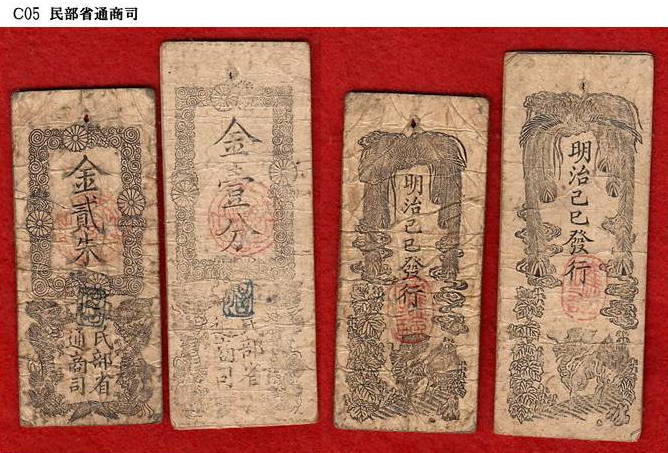 C05 民部省通商司
金貳朱
民部省
通商司
金壹分
民部省
通商司
明治己巳發行
明治己巳發行